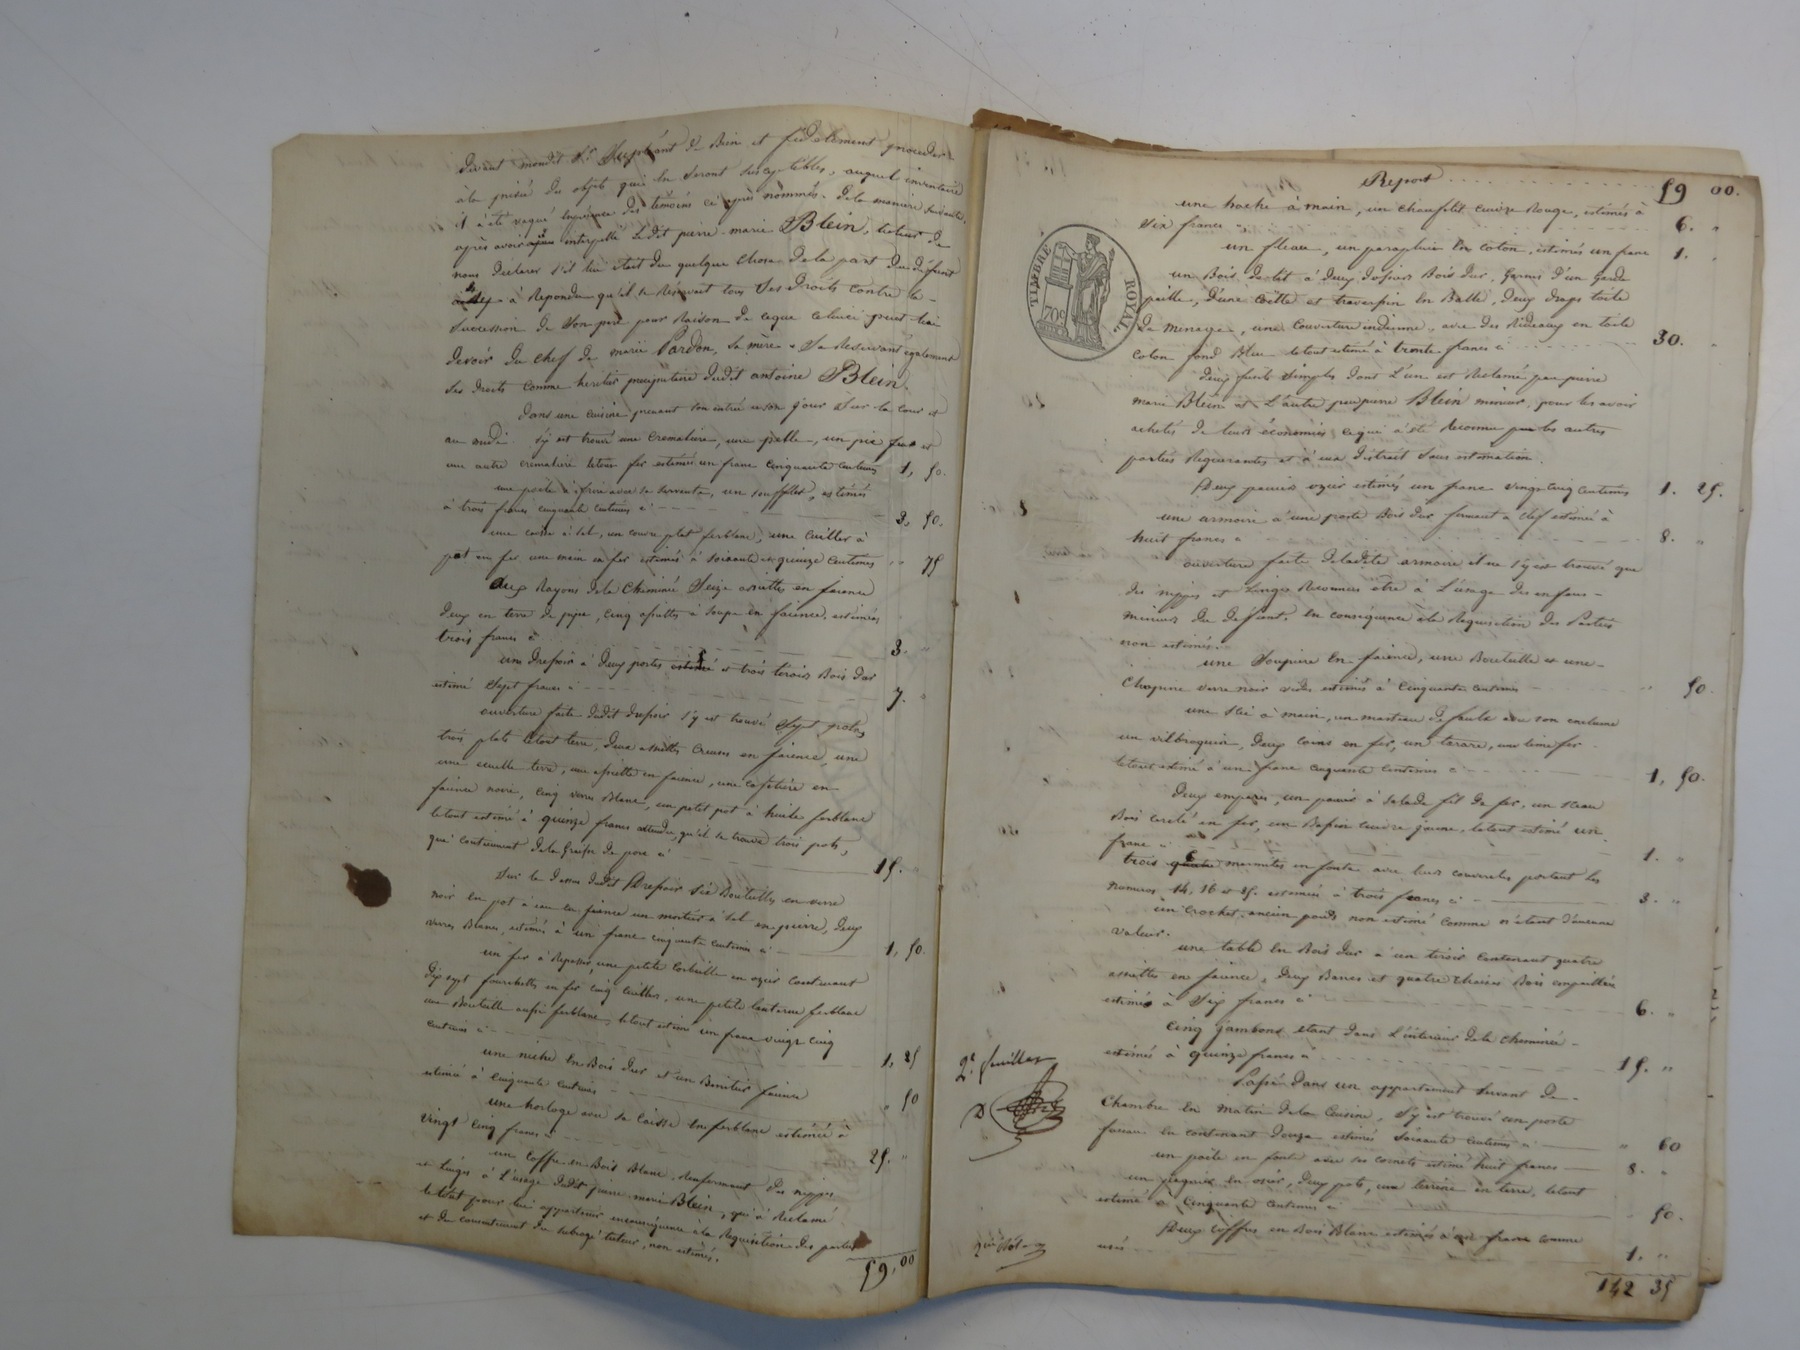 devant mondit Sr Suppléant de Bien et fidelement proceder
à la prisée des objets qui en seront susceptibles, auquel inventaire
il a été vaqué en présence des témoins ci après nommés. de la manière suivante,
après avoir interpellé ledit pierre marie Blein, tuteur de
nous déclarer s'il lui était du quelque chose de la part du défunt
à Repondu qu'il se Réservait tous ses droits contre la
succession de son pere pour Raison de ce que celui ci peut lui
devoir du chef de marie Pardon, sa mère. Se Reservant également
ses droits comme heritier preciputaire dudit antoine Blein.
Dans une cuisine prenant son entrée et son jour sur la cour et
au midi. s'y est trouvé une cremaliere, une pelle, un pic feu et
une autre cremaliere letout fer estimés un franc cinquante centimes 1, 50.
une poele à frire avec sa servente, un soufflet, estimés
à trois francs cinquante centimes ci 3, 50.
une caisse à sel, un couvre plat ferblanc, une cuiller à
pot en fer une main en fer estimés à soixante et quinze centimes " 75
Aux Rayons de la cheminée Seize assiettes en faience
deux en terre de pipe, cinq assiettes à soupe en faience, estimés
trois francs ci 3. "
un dressoir à deux portes estimé et trois tiroirs Bois dur
estimé Sept francs ci 7. "
ouverture faite dudit dressoir s'y est trouvé Sept
trois plats letout terre, deux assiettes creuses en faience, une
une ecuelle terre, une assiette en faience, une cafetière en
faience noire, cinq verres Blanc, un petit pot à huile ferblanc
letout estimé à quinze francs attendu qu'il se trouve trois pots,
qui contiennent de la Graisse de porc ci 15. "
Sur le dessus dudit Dressoir six Bouteilles en verre
noir un pot à eau en faience un mortier à sel en pierre, deux
verres Blancs, estimés à un franc cinquante centimes ci 1, 50.
un fer à Repasser, une petite corbeille en ozier contenant
dix sept fourchettes en fer cinq cuillers, une petite lanterne ferblanc
une Bouteille aussi ferblanc, letout estimé un franc vingt cinq
centimes ci 1, 25
une niche en Bois dur et un Benitier faience
estimés à cinquante centimes " 50
une horloge avec sa caisse en ferblanc estimée à
vingt cinq francs ci 25. "
un coffre en Bois Blanc Renfermant des nippes
et Linges à l'usage dudit pierre marie Blein, qui a Réclamé
letout pour lui appartenir en conséquence à la Requisition des parties
et du consentement du subrogé tuteur, non estimés.
59, 00
Report 59 00.
TIMBRE ROYAL.
70c
une hache à main, un cuivre Rouge, estimés à
six francs 6. "
un fleau, un parapluie en coton, estimés un franc 1. "
un Bois de lit à deux dossiers Bois dur, Garni d'un Garde
paille, d'une coëtte et traversin en Balle, deux draps toile
de menage, une couverture indienne, avec des Rideaux en toile
coton fond Bleu letout estimé à trente francs ci 30. "
deux fusils simples dont l'un est Réclamé par pierre
marie Blein et l'autre par pierre Blein mineur pour les avoir
achetés de leurs économies ce qui a été Reconnu par les autres
parties Requerantes et à eux distrait sous estimation.
Deux paniers ozier estimés un franc vingt cinq centimes 1. 25.
une armoire à une porte Bois dur fermant à clef estimée à
huit francs ci 8. "
ouverture faite de ladite armoire il ne s'y est trouvé que
des nippes et Linges Reconnus être à L'usage des enfans
mineurs du defunt. En conséquence à la Requisition des Parties
non estimés.
une Soupière en faience, une Bouteille et une
Chopine verre noir vides estimés à Cinquante centimes " 50.
une scie à main, un marteau de faulx avec son enclume
un vilbroquin, deux coins en fer, un tarare, une lime fer.
letout estimé à un franc cinquante centimes ci 1, 50.
deux, un panier à salade fil de fer, un Seau
Bois cerclé en fer, un Bassin cuivre jaune, letout estimé un
franc ci 1. "
trois quatre marmites en fonte avec leurs couvercles portant les
numeros 14, 16 et 25. estimées à trois francs ci 3. "
un crochet, ancien poids non estimé comme n'étant d'aucune
valeur.
une table en Bois dur à un tiroir contenant quatre
assiettes en faience, deux Bancs et quatre chaises Bois empaillées
estimés à six francs ci 6. "
Cinq jambons étant dans L'interieur de la cheminée
estimés à quinze francs ci 15. "
2e feuillet
Passé dans un appartement servant de
Chambre en matin de la cuisine, s'y est trouvé un porte
fuseau en contenant douze estimés soixante centimes ci " 60
un poele en fonte avec ses cornets estimé huit francs 8. "
un en osier, deux pots, une terrine en terre, letout
estimé à cinquante centimes ci " 50.
Deux coffres en Bois Blanc estimés à un franc comme
usés 1. "
142 35